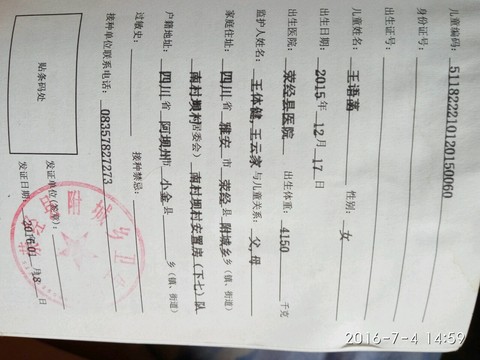 儿童编码: 5118222101201500​60
身份证号:
出生证号:
儿童姓名: 王语菡 性别: 女
出生日期: 2015 年 12 月 17 日
出生医院: 荥经县医院 出生体重: 4150 千克
监护人姓名: 王体健,王云家 与儿童关系: 父,母
家庭住址: 四川 省 雅安 市 荥经 县 附城乡 乡(镇、街道)
南村坝村(居委会) 南村坝村安置房(下七)队
户籍地址: 四川 省 阿坝州 市 小金 县 乡(镇、街道)
过敏史: 接种禁忌:
接种单位联系电话: 08357827273
贴条码处
发证单位(签章):
发证日期: 2016 01 月 18 日
2016-7-4 14:59